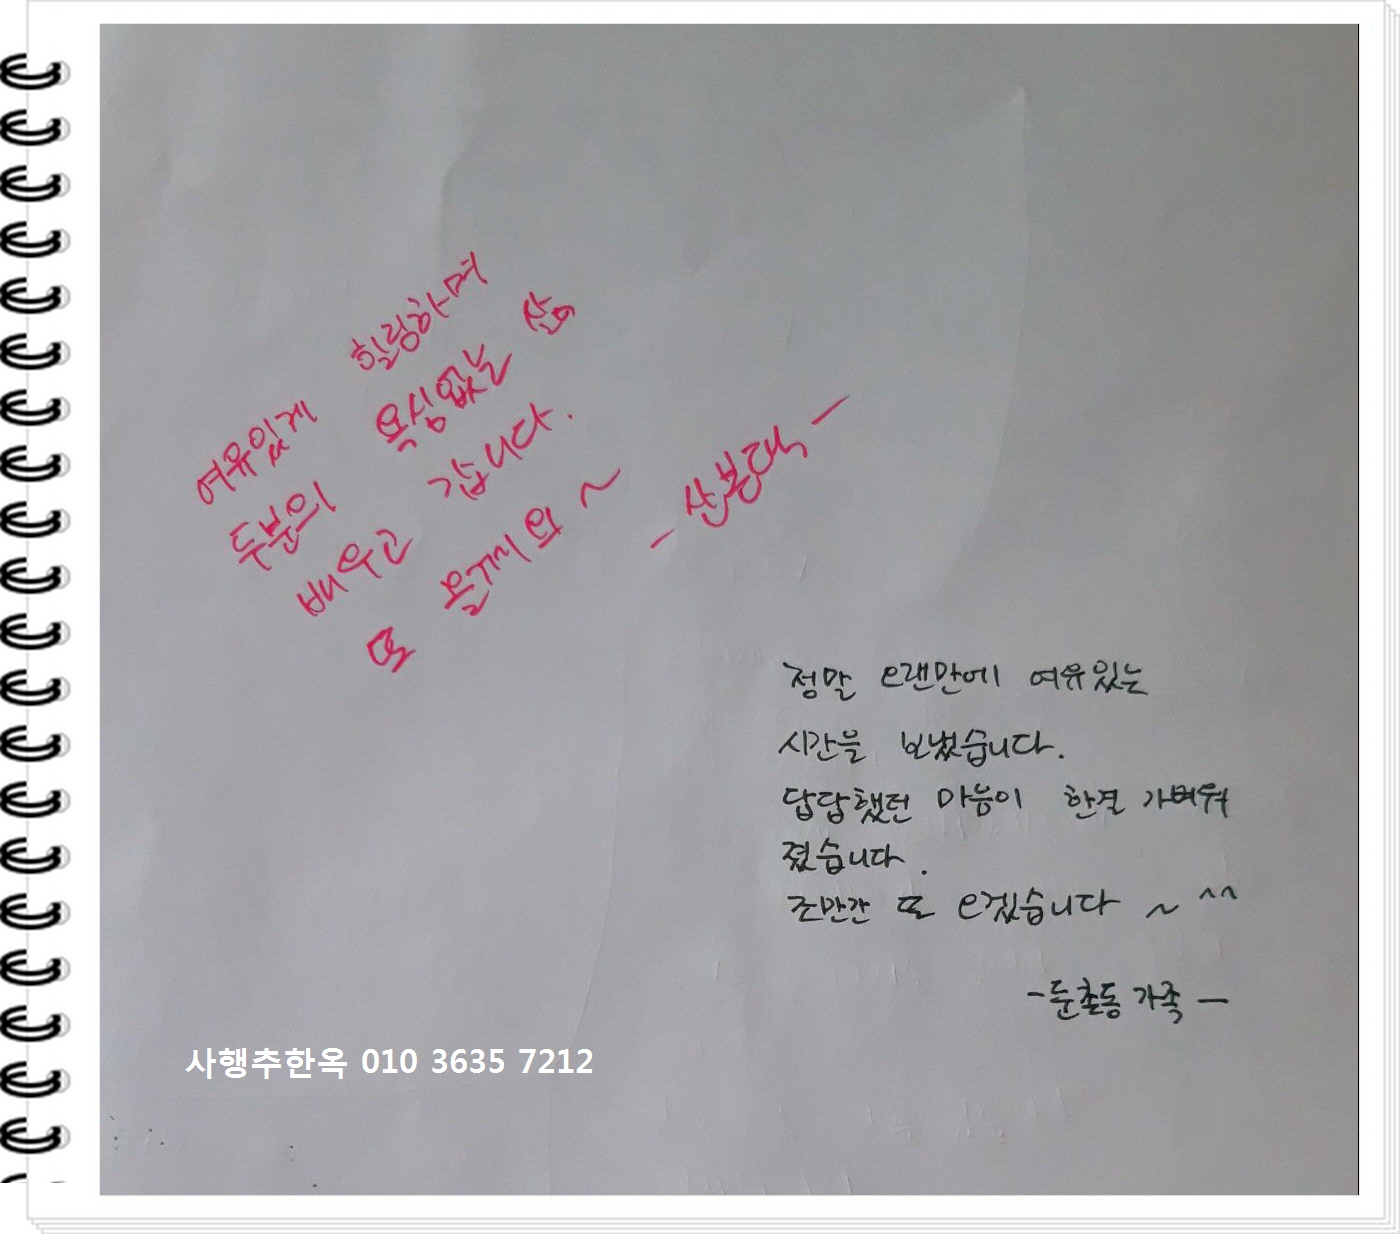 여유있게 힐링하며
두분의 욕심없는 삶
배우고 갑니다.
또 올께요 ~
- 산본댁 -
정말 오랜만에 여유있는
시간을 보냈습니다.
답답했던 마음이 한결 가벼워
졌습니다.
조만간 또 오겠습니다 ~ ^^
- 둔촌동 가족 -
사행추한옥 010 3635 7212